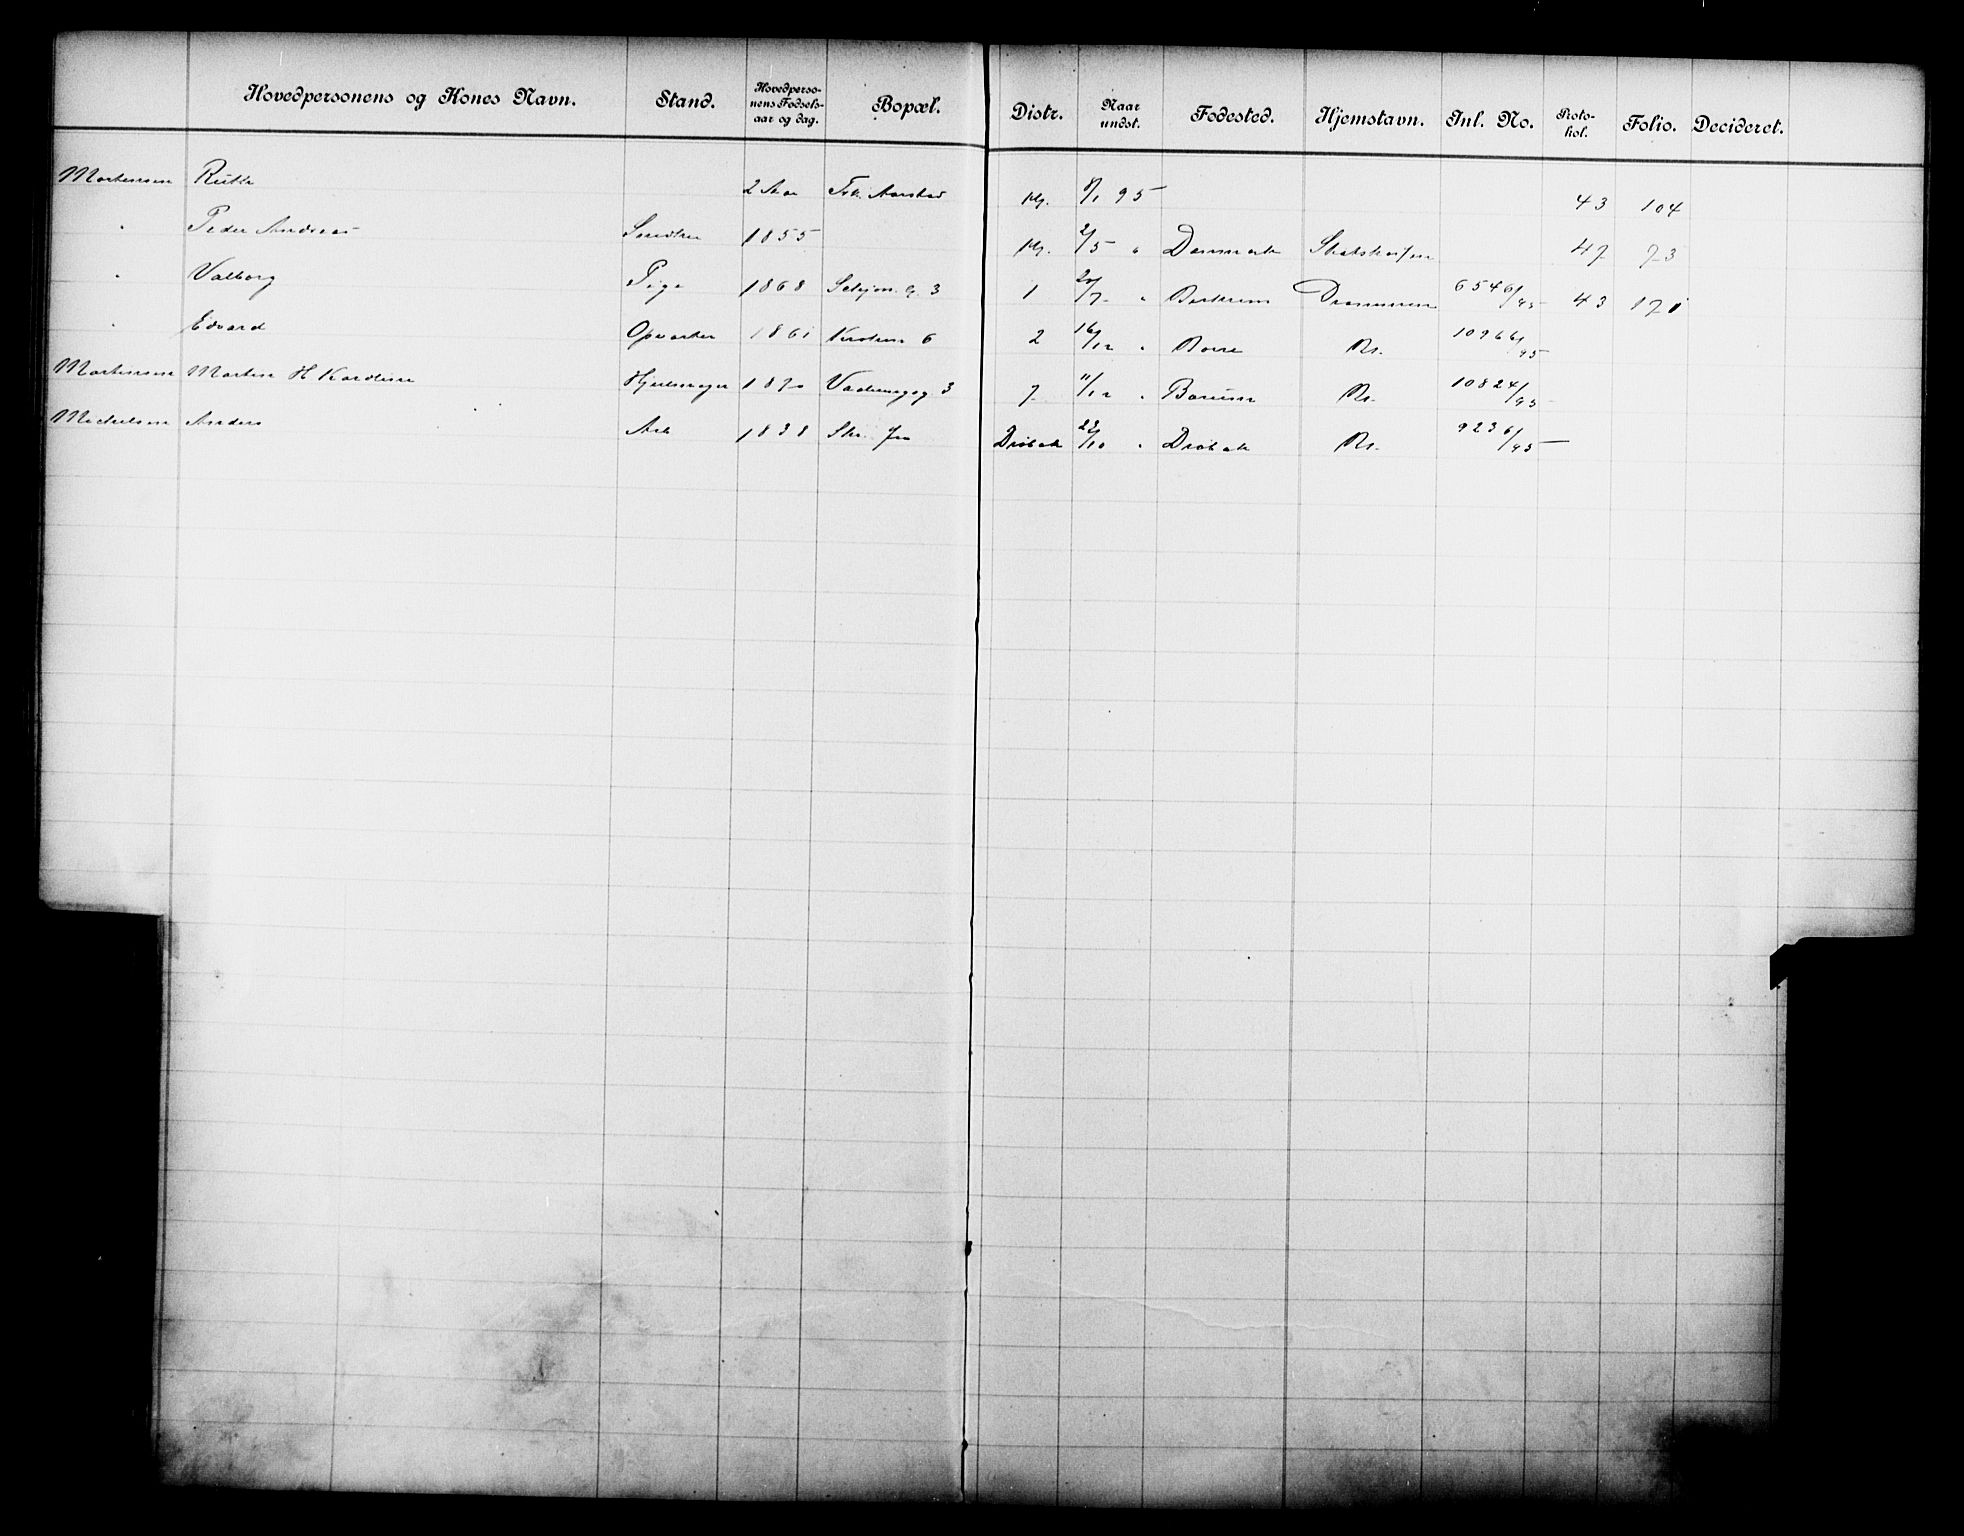 Hovedpersonens og Kones Navn. Stand. Hovedperso-nens Fødsels-aar og dag. Bopæl. Distr. Naar undst. Fødested. Hjemstavn. Inl. No. Proto-kol. Folio. Decideret.
Mortensen Ruth 2 Aar Frk. Aarstad 8/1 95 43 104
" Peder Andreas 1855 2/5 " Danmark 47 73
" Valborg Pige 1868 3 1 20/7 " Drammen 6546/95 43 171
" Edvard Opvarter 1861 6 2 16/12 " Borre 10966/95
Mortensen Morten H 1870 3 7 11/12 " Bærum 10824/95
Michelsen Anders Arb 1838 Drøbak 23/10 " Drøbak 9236/95